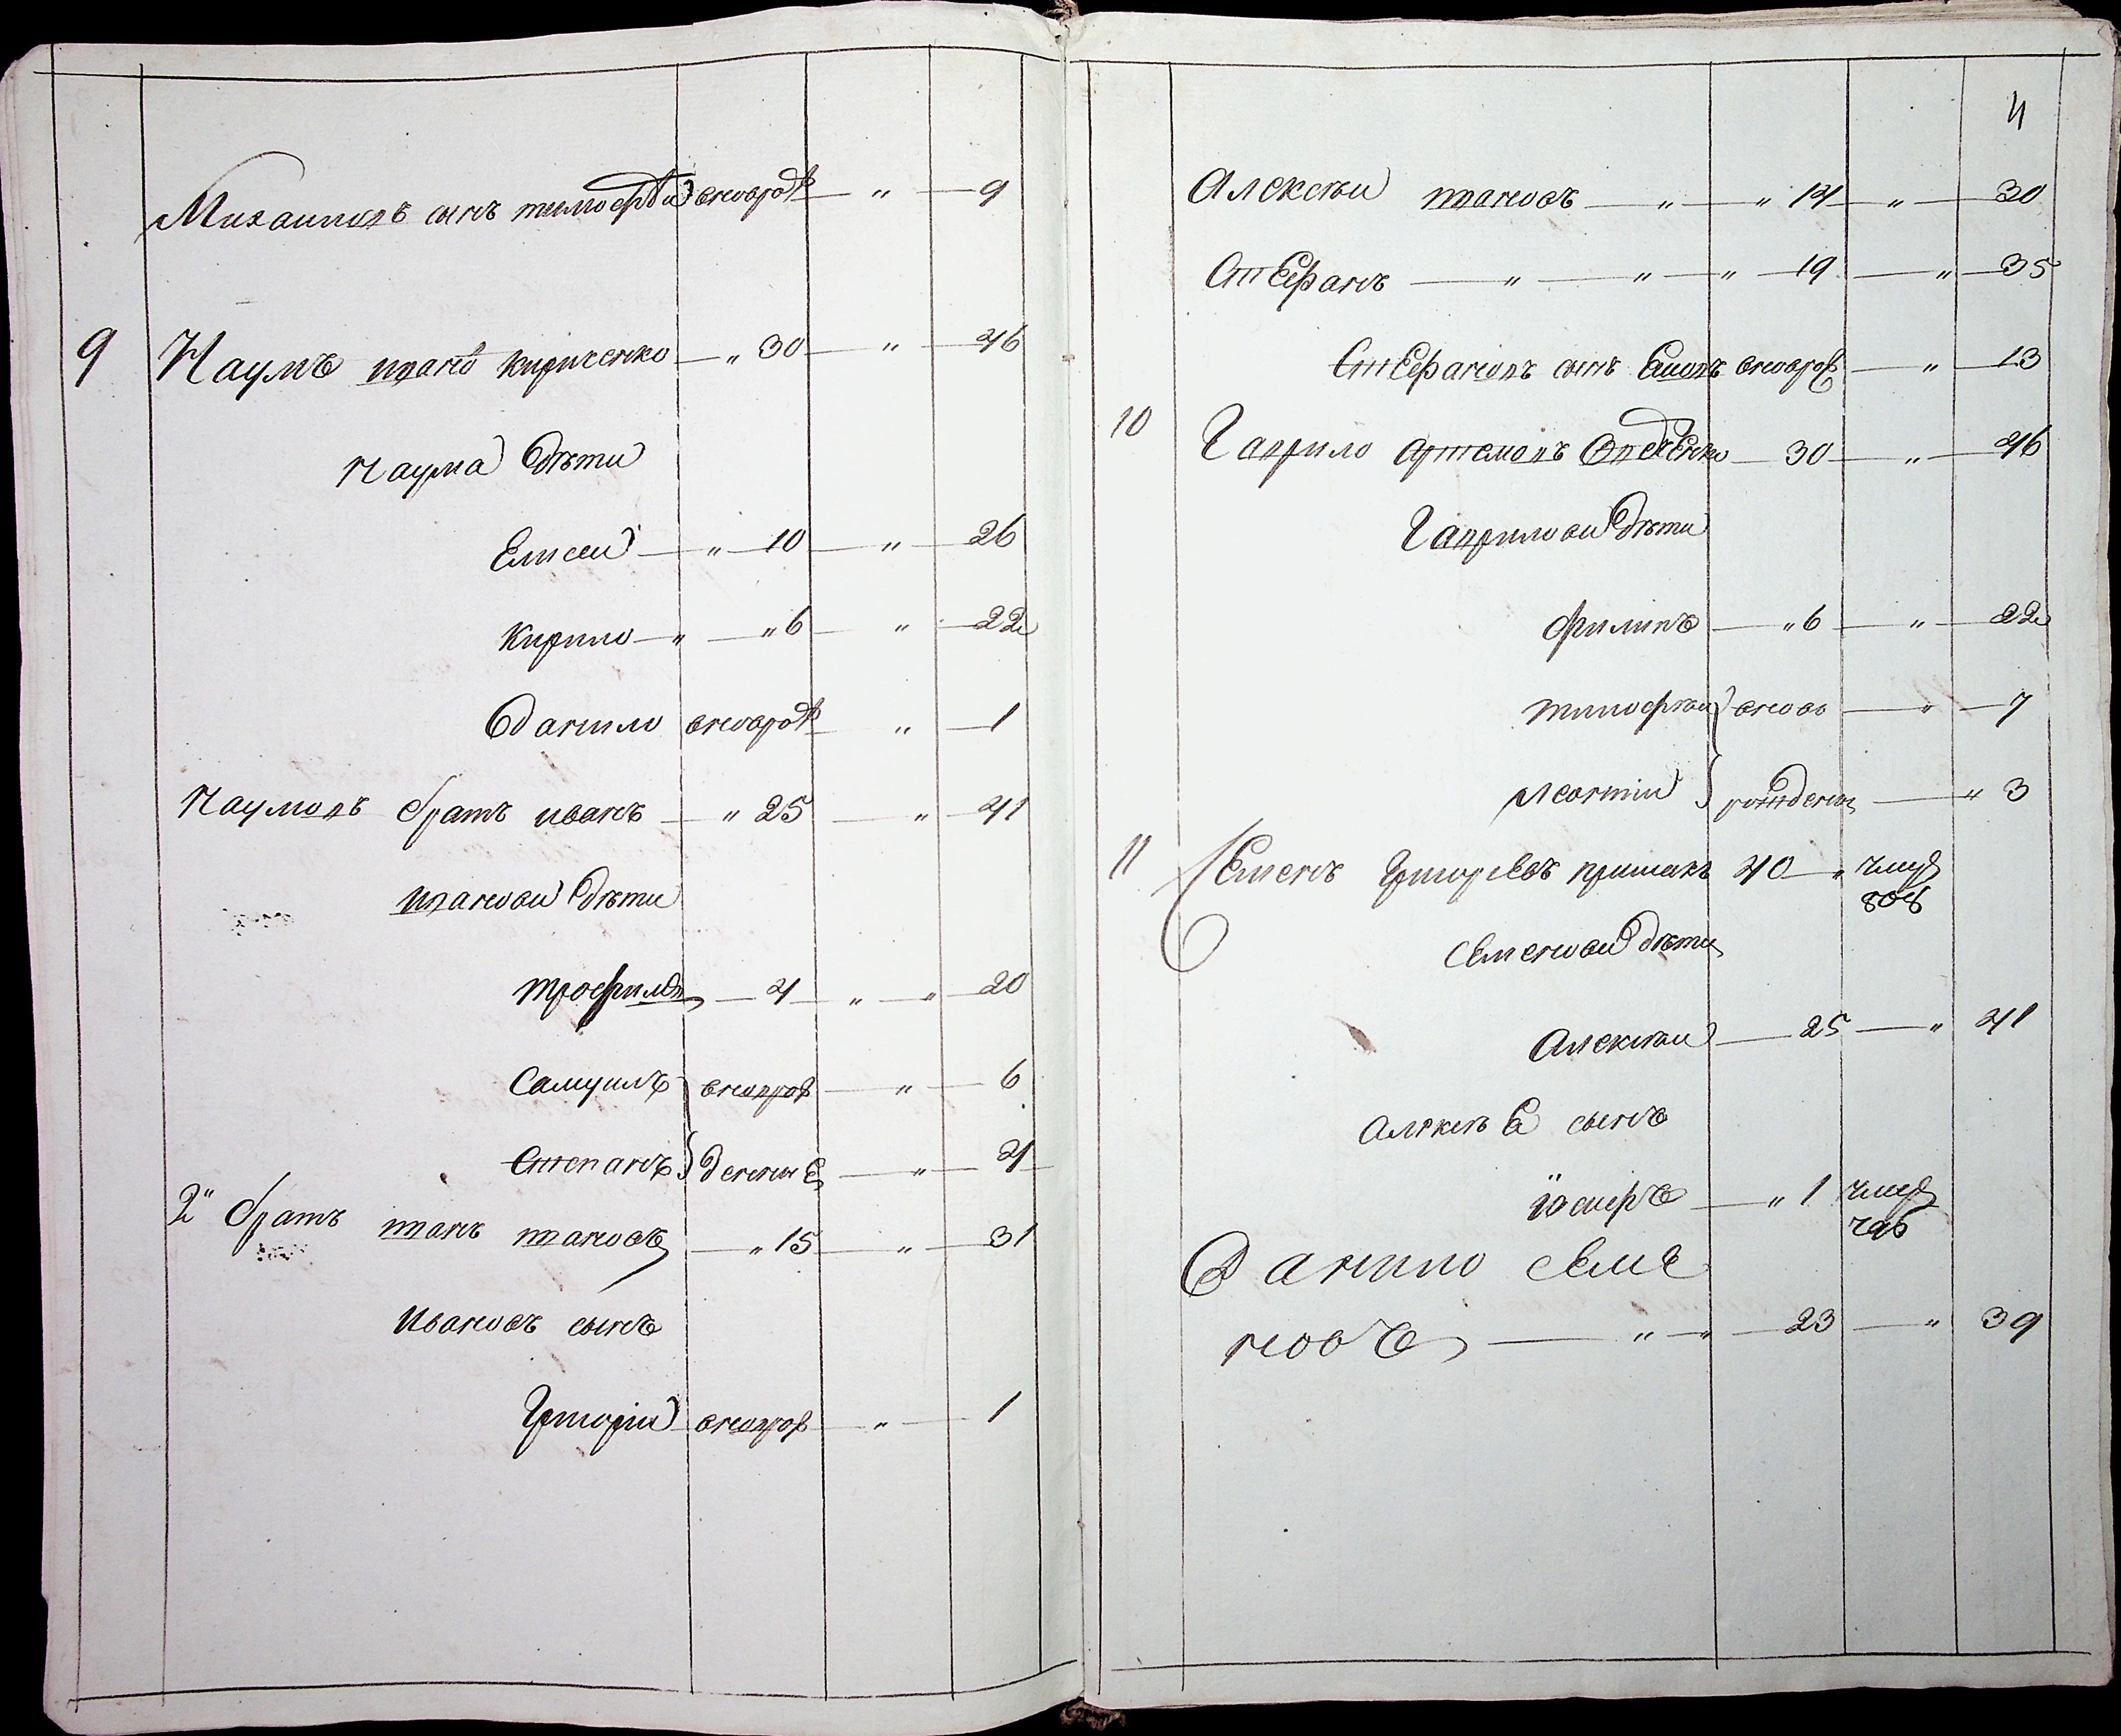 Михаиловъ сынъ тимофѣй вновро „ 9
9 Наумъ Ивано Кириченко „ 30 „ 46
Наума дѣти
Елисей „ 10 „ 26
Кирило „ „ 6 „ 22
Данило вновро „ 1
Наумовъ братъ иванъ „ 25 „ 41
ивановы дѣти
трофимъ 4 „ „ 20
Самуилъ вновро „ 6
Степанъ жденные „ 4
2й братъ иванъ ивановъ „ 15 „ 31
Ивановъ сынъ
Григорій вновро „ 1
4
Алексѣй ивановъ „ „ 14 „ 30
Стефанъ „ „ „ 19 „ 35
Стефановъ сынъ вновро „ 13
10 Гаврило Артемовъ 30 „ 46
Гавриловы дѣти
филипъ „ 6 „ 22
тимофѣй вновь „ 7
Леонтій рожденны „ 3
11 Семенъ Григорьевъ примакъ 40 „ умер
808
Семеновы дѣти
Алексѣй 25 „ 41
Алексѣя сынъ
Іосифъ „ 1 умер
Данило Семе
новъ „ „ 23 „ 39